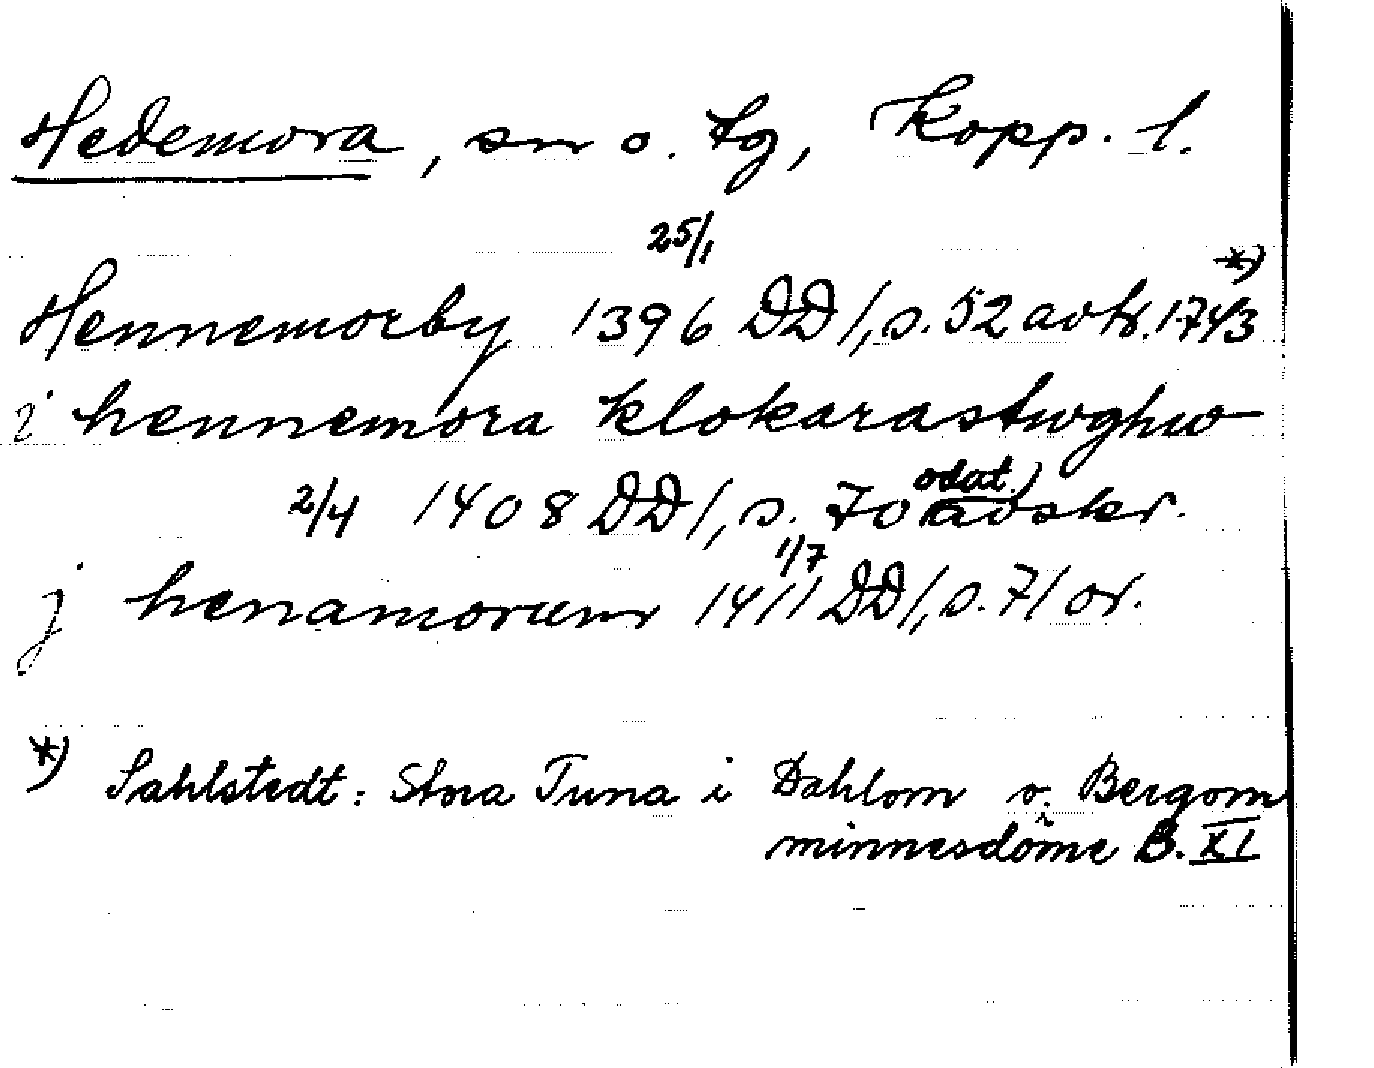 Hedemora, sn o. tg, Kopp. l.
25/1
Hennemorby 1396 DD 1, s. 52 avtr. 1743 *)
i hennemora klokarastwghw
2/4 1408 DD 1, s. 70 odat.) avskr.
1/7
j henamorum 1411 DD 1, s. 71 or.
*) Sahlstedt: Stora Tuna i Dahlom o. Bergom
minnesdöme B. XI